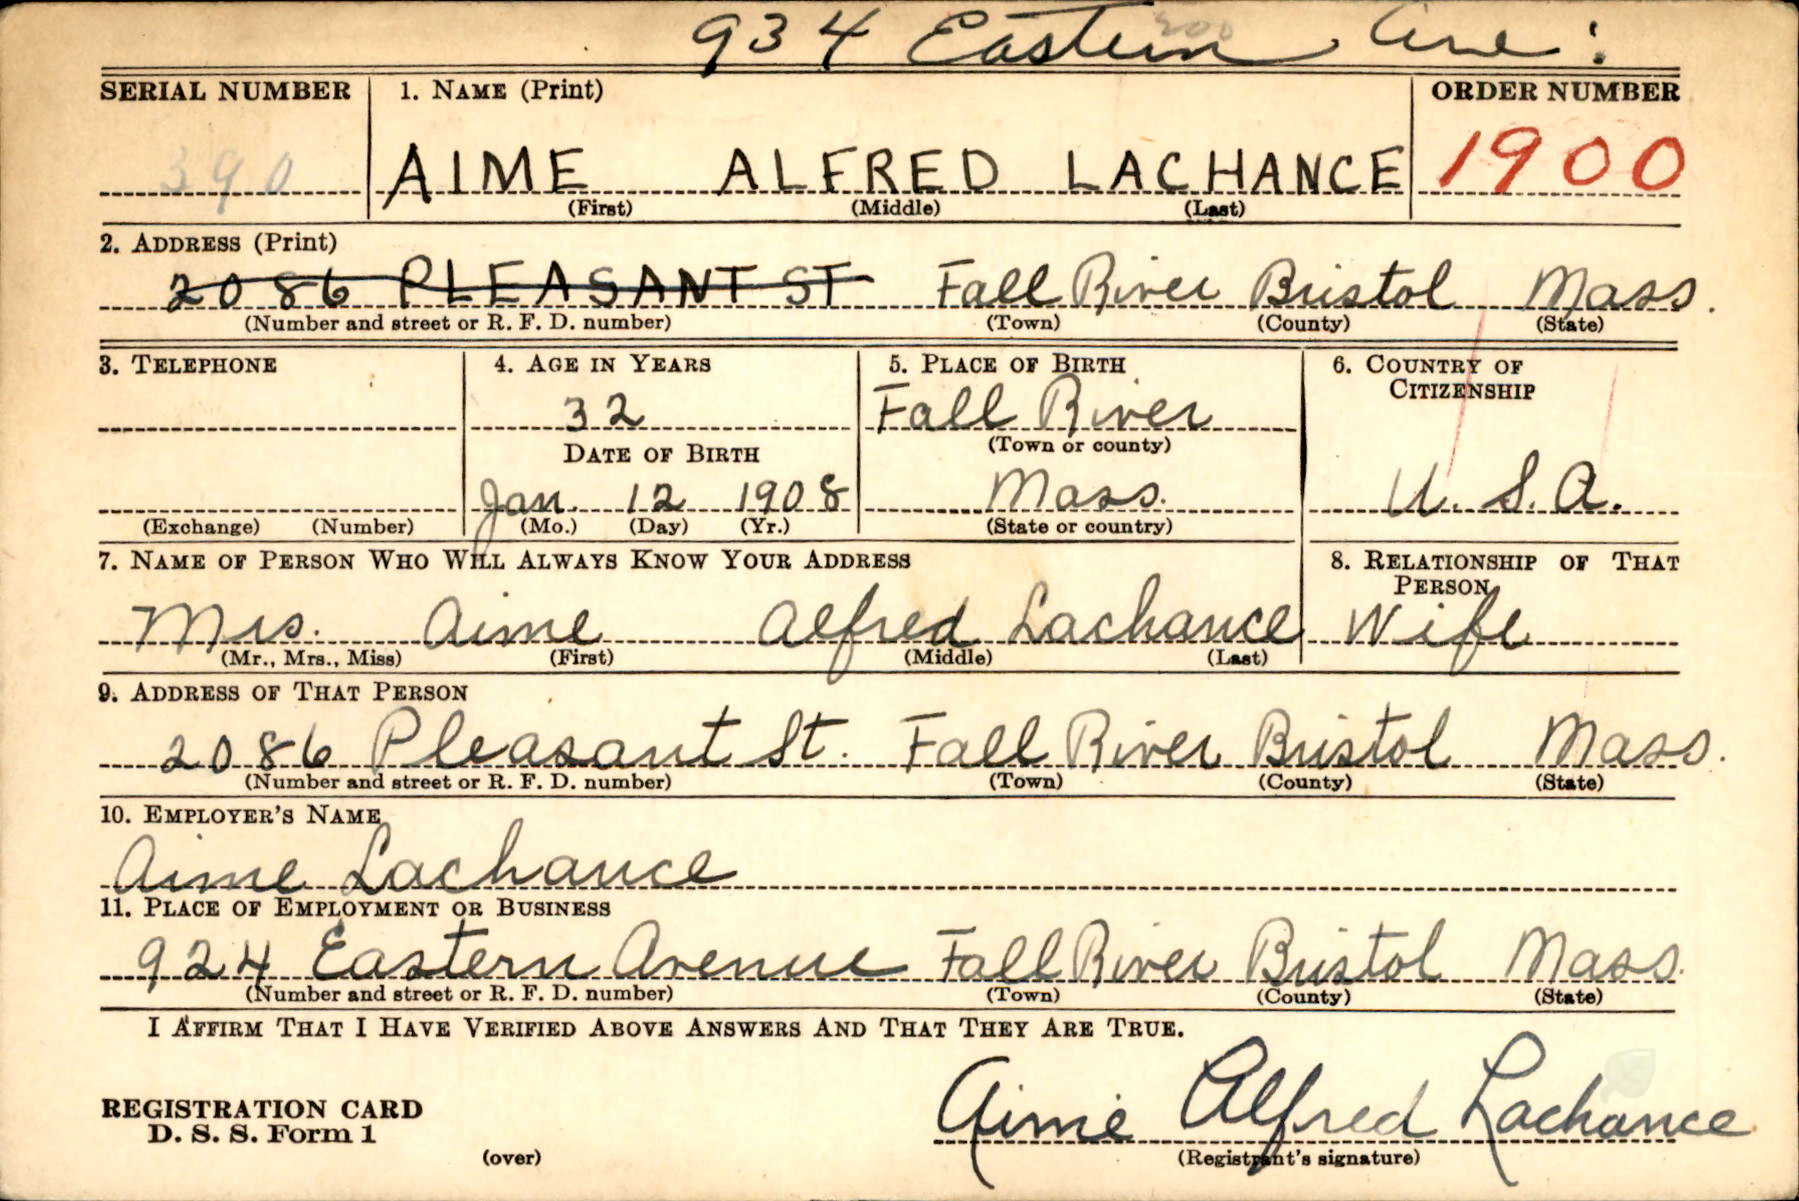 934 Eastern Ave.
SERIAL NUMBER 1. NAME (Print) ORDER NUMBER
390 AIME ALFRED LACHANCE 1900
(First) (Middle) (Last)
2. ADDRESS (Print)
2086 PLEASANT ST Fall River Bristol Mass.
(Number and street or R. F. D. number) (Town) (County) (State)
3. TELEPHONE 4. AGE IN YEARS 5. PLACE OF BIRTH 6. COUNTRY OF CITIZENSHIP
32 Fall River
DATE OF BIRTH (Town or county)
Jan. 12 1908 Mass. U. S. A.
(Exchange) (Number) (Mo.) (Day) (Yr.) (State or country)
7. NAME OF PERSON WHO WILL ALWAYS KNOW YOUR ADDRESS 8. RELATIONSHIP OF THAT PERSON
Mrs. Aime Alfred Lachance Wife
(Mr., Mrs., Miss) (First) (Middle) (Last)
9. ADDRESS OF THAT PERSON
2086 Pleasant St. Fall River Bristol Mass.
(Number and street or R. F. D. number) (Town) (County) (State)
10. EMPLOYER'S NAME
Aime Lachance
11. PLACE OF EMPLOYMENT OR BUSINESS
924 Eastern Avenue Fall River Bristol Mass.
(Number and street or R. F. D. number) (Town) (County) (State)
I AFFIRM THAT I HAVE VERIFIED ABOVE ANSWERS AND THAT THEY ARE TRUE.
REGISTRATION CARD
D. S. S. Form 1
Aimé Alfred Lachance
(over) (Registrant's signature)